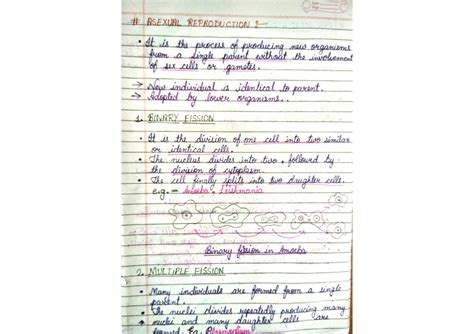 # ASEXUAL REPRODUCTION :-
• It is the process of producing new organisms
from a single parent without the involvement
of sex cells or gametes.
→ New individual is identical to parent.
→ Adopted by lower organisms.
1. BINARY FISSION
• It is the division of one cell into two similar
or identical cells.
• The nucleus divides into two, followed by
the division of cytoplasm.
• The cell finally splits into two daughter cells.
e.g. - Amoeba, Leishmania
Binary fission in Amoeba
2. MULTIPLE FISSION
• Many individuals are formed from a single
parent.
• The nuclei divides repeatedly producing many
nuclei and many daughter cells are
formed. Eg. Plasmodium